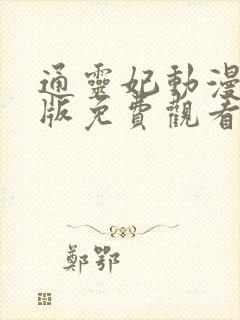 通靈妃動漫
版免費觀看
鄭鄂